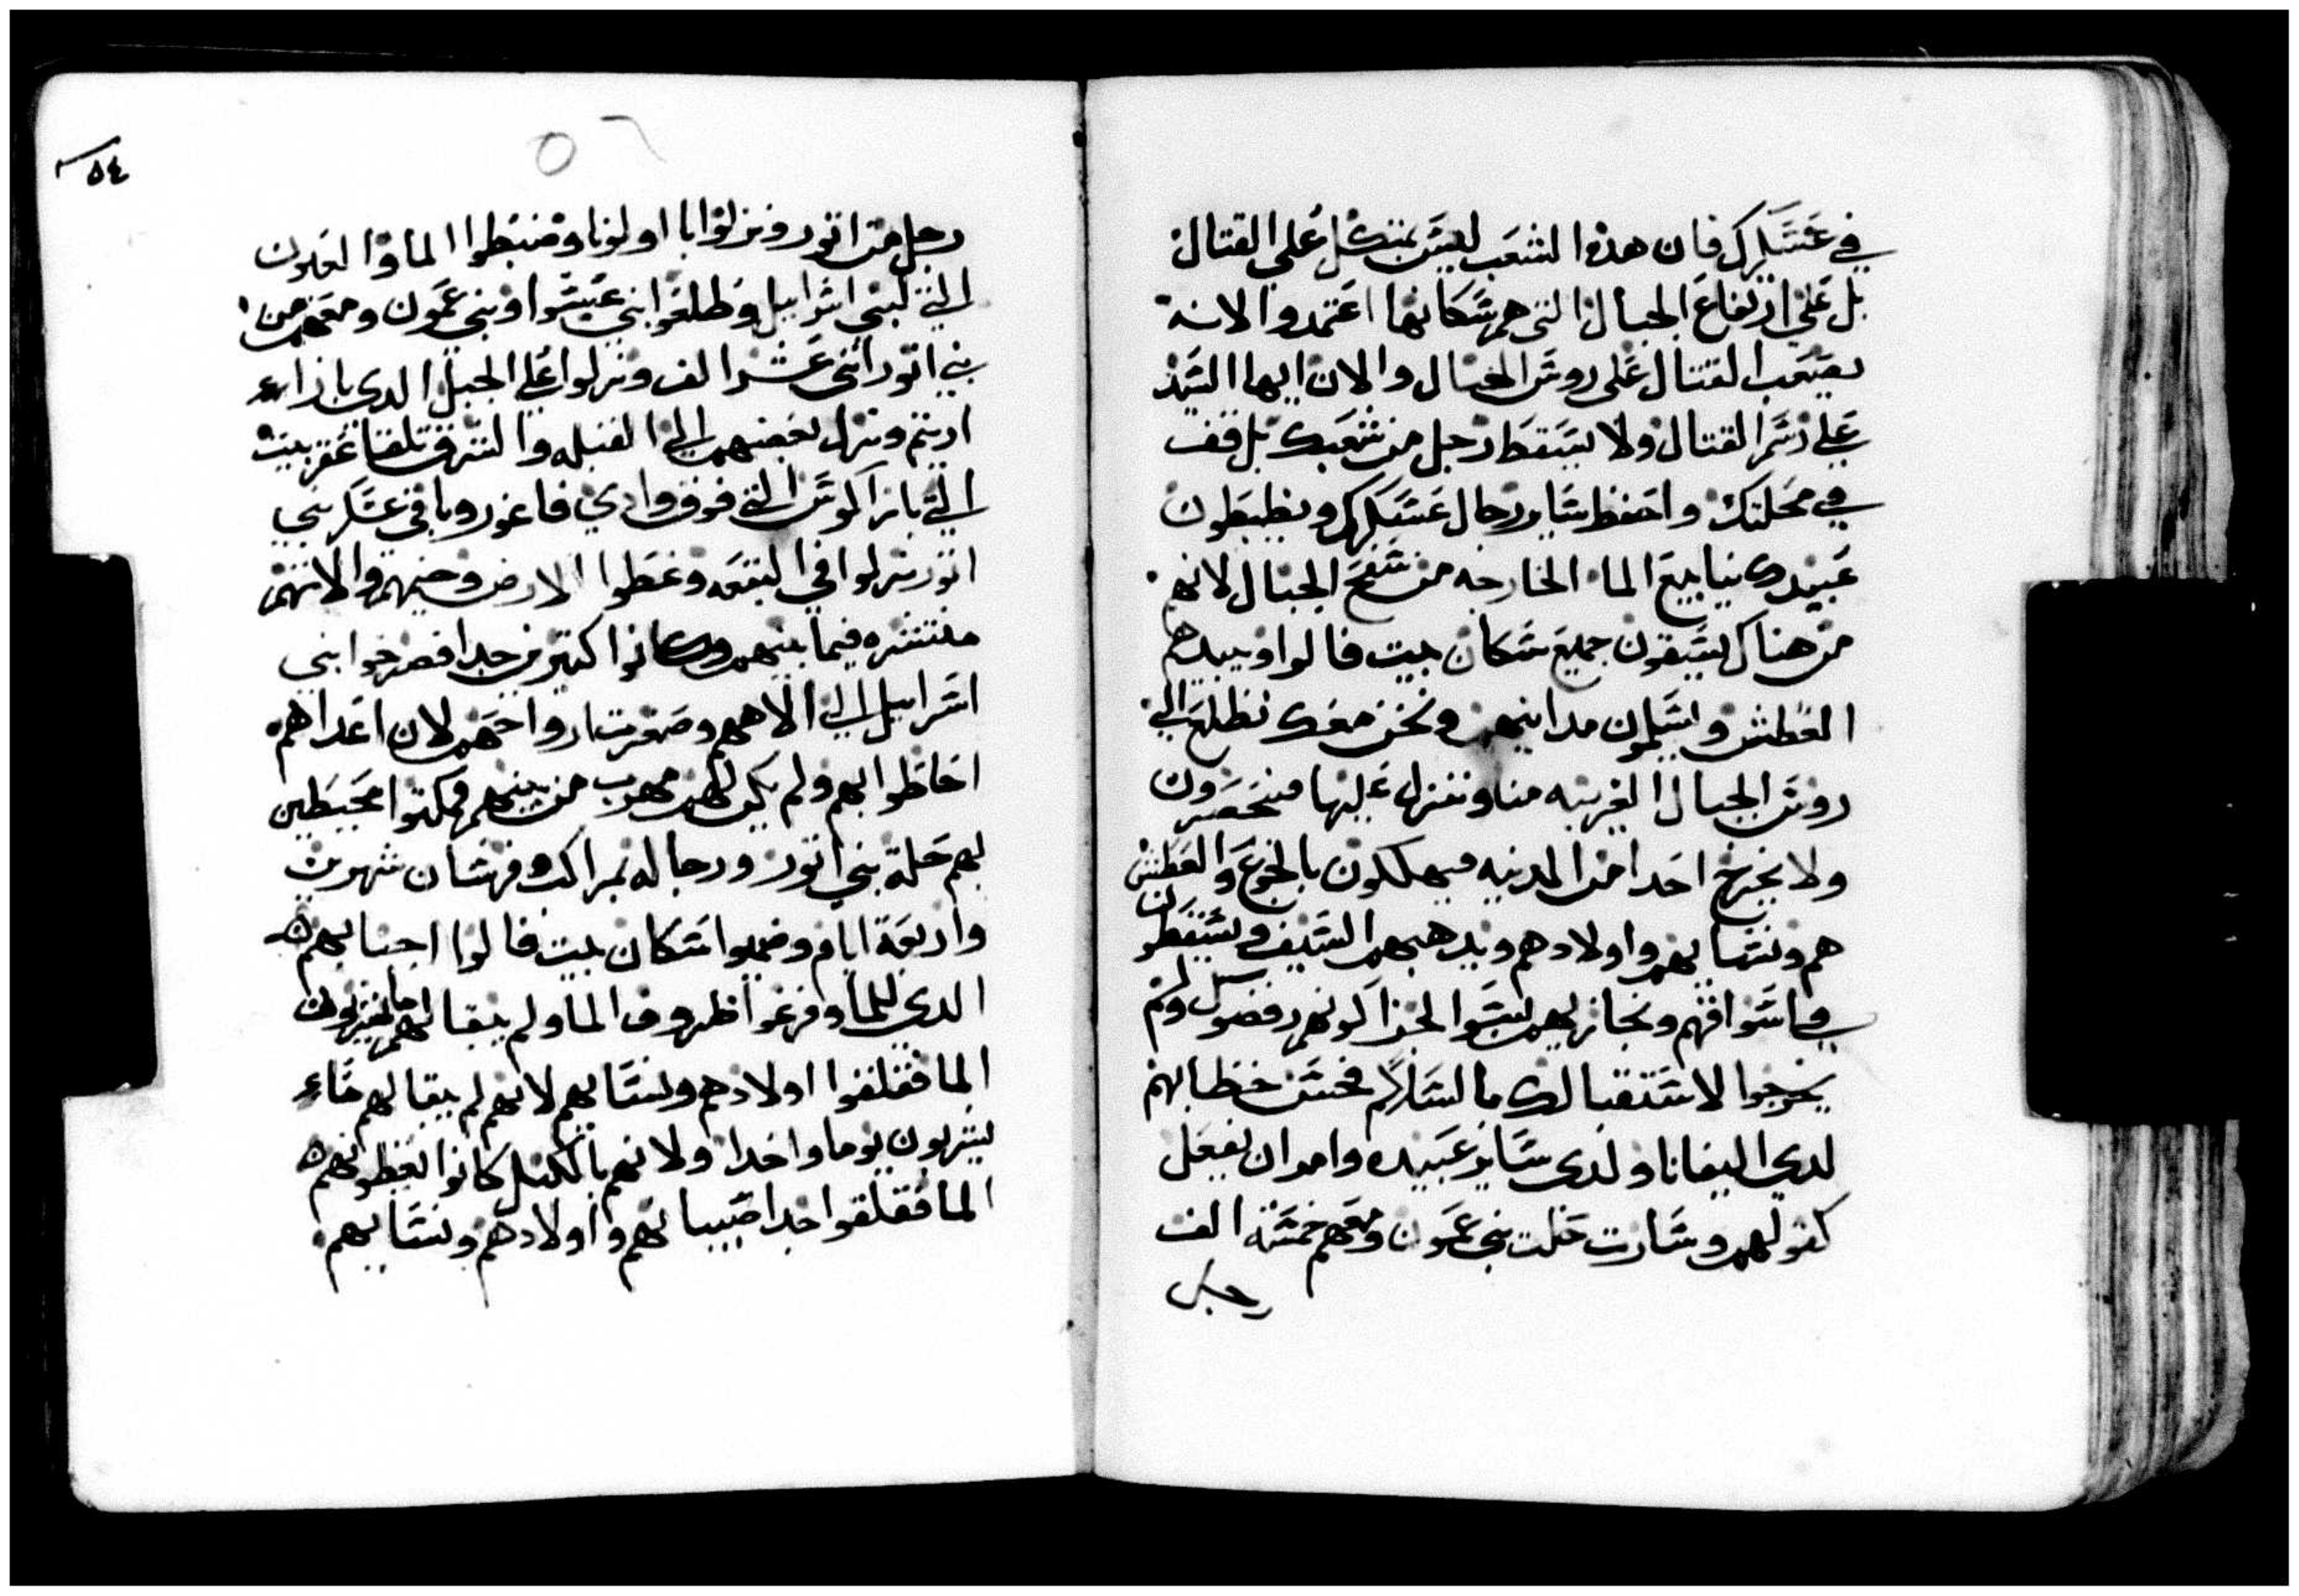 في عسكرك فان هذا الشعب ليس بمتكل علي القتال
بل علي ارتفاع الجبال التي هم سكانها اعتمدوا لانه
يصعب القتال علي روس الجبال والان ايها السيد
علي رسم القتال ولا يسقط رجل من شعبك بل قف
في محلتك واحفظ ساير رجال عسكرك ويظبطون
عبيدك ينابيع الما الخارجه من سفح الجبال لانهم
من هناك يسقون جميع سكان بيت فالوا ويبيدهم
العطش ويسلمون مداينهم ونحن معك نطلع الي
روس الجبال القريبه منا وننزل عليها فينحصرون
ولا يخرج احدا من المدينه فيهلكون بالجوع والعطش
هم ونسايهم واولادهم ويدهمهم السيف ويسقطون
في اسواقهم ونجازيهم اسوا الجزا كونهم رفضوك ولم
يخرجوا لاستقبالك بالسلام فحسن خطابهم
لدي اليفانا ولدي ساير عبيده وامر ان يفعل
كقولهم وسارت حلت بني عمون ومعهم خمسة الف
رجل
٥٤
٥٦
رجل من اتور ونزلوا با اولونا وضبطوا الما والعيون
التي لبني اسراييل وطلعوا بني عيسوا وبني عمون ومعهم من
بني اتور اثني عشر الف ونزلوا علي الجبل الدي بازاء
اديتم ونزل بعضهم الي القبله والشرق تلقا عقربيت
التي بازا كوس التي فوق وادي فاغور وباقي عسكر بني
اتور نزلوا في البقعه وغطوا الارض وخيمهم والاتهم
منتشره فيما بينهم وكانوا كثيرين جدا فصرخوا بني
اسراييل الي الاههم وصغرت ارواحهم لان اعداهم
احاطوا بهم ولم يكن لهم مهرب من بينهم فمكتوا محيطين
بهم حلة بني اتور ورجاله بمراكب وفرسان شهرين
واربعة ايام وضميوا سكان بيت فالوا اجبابهم
الدي للما وفرغوا ظروف الما ولم يبقا لهم ما يشربون
الما فقلقوا اولادهم ونسايهم لانهم لم يبقا لهم ماء
يشربون يوما واحدا ولانهم بالكيل كانوا يعطونهم
الما فقلقوا جدا صبيانهم واولادهم ونسايهم